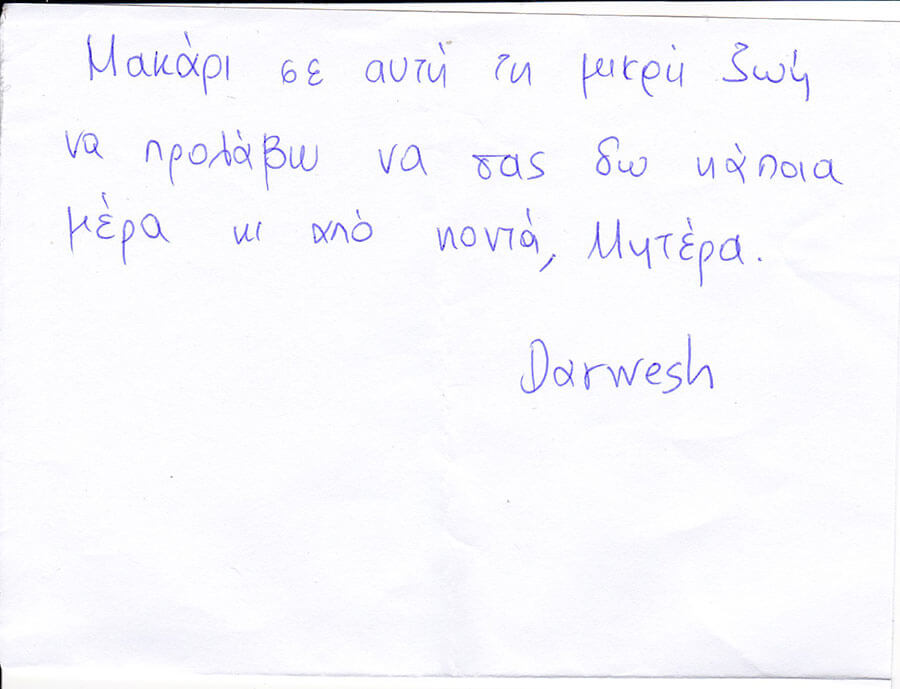 Μακάρι σε αυτή τη μικρή ζωή
να προλάβω να σας δω κάποια
μέρα κι από κοντά, Μητέρα.
Darwesh